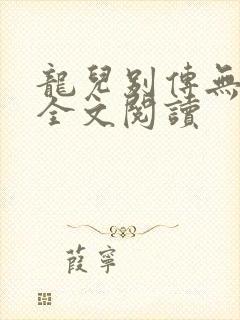 龍兒别傳無
全文閱讀
葭寧